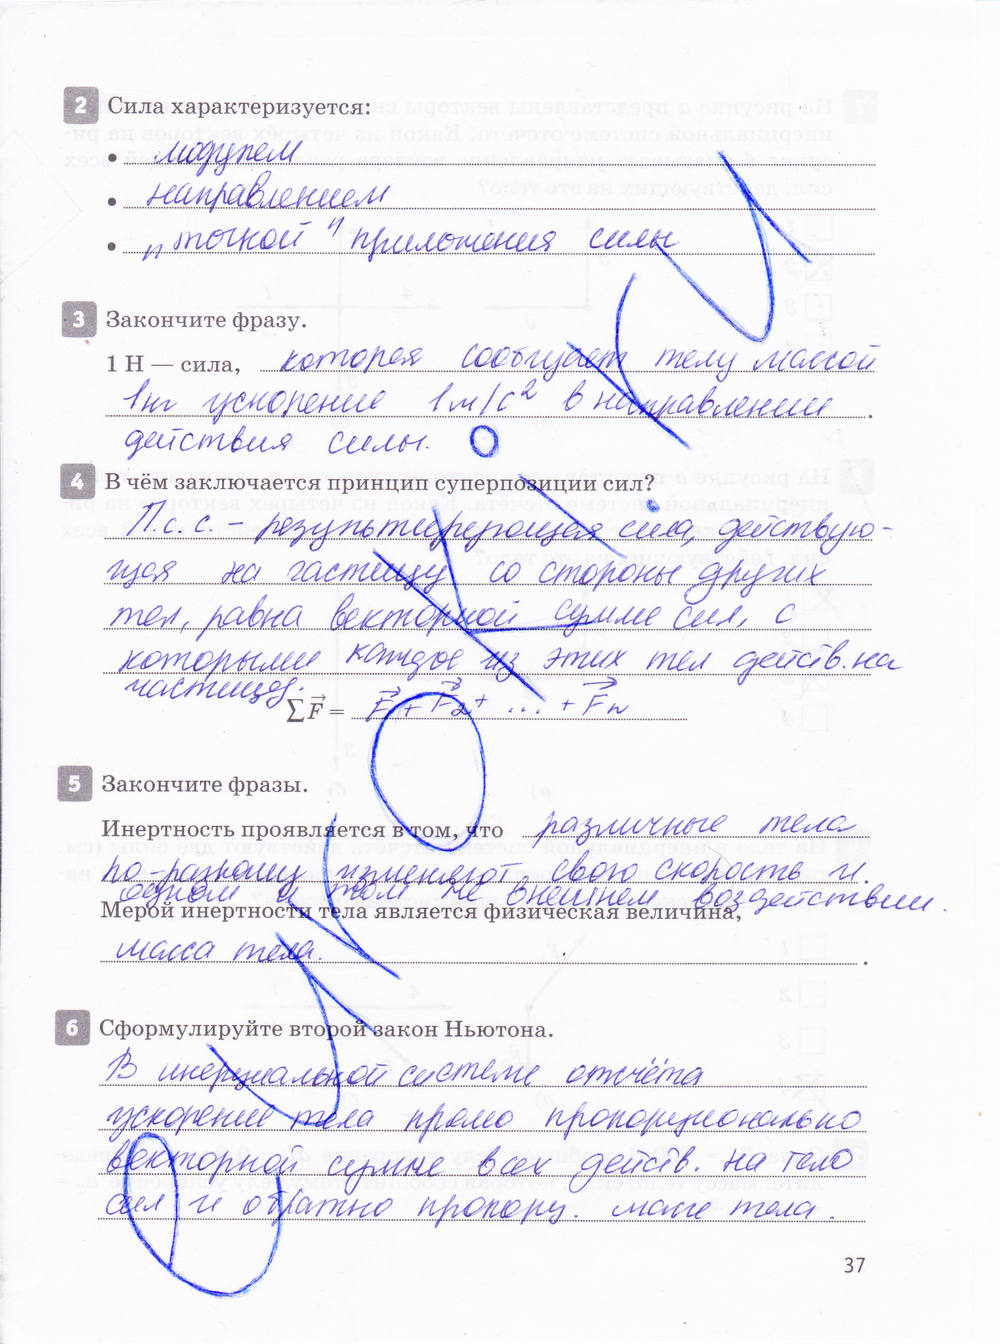 2 Сила характеризуется:
• модулем
• направлением
• "точкой" приложения силы
3 Закончите фразу.
1 Н — сила, которая сообщает телу массой
1кг ускорение 1м/с² в направлении .
действия силы.
4 В чём заключается принцип суперпозиции сил?
П.с.с. - результирующая сила, действую-
щая на частицу со стороны других
тел, равна векторной сумме сил, с
которыми каждое из этих тел действ. на
частицу.
∑F⃗ = F⃗₁ + F⃗₂ + ... + F⃗n
5 Закончите фразы.
Инертность проявляется в том, что различные тела
по-разному изменяют свою скорость и .
одном и том же внешнем воздействии.
Мерой инертности тела является физическая величина,
масса тела. .
6 Сформулируйте второй закон Ньютона.
В инерциальной системе отсчёта
ускорение тела прямо пропорционально
векторной сумме всех действ. на тело
сил и обратно пропорц. массе тела.
37